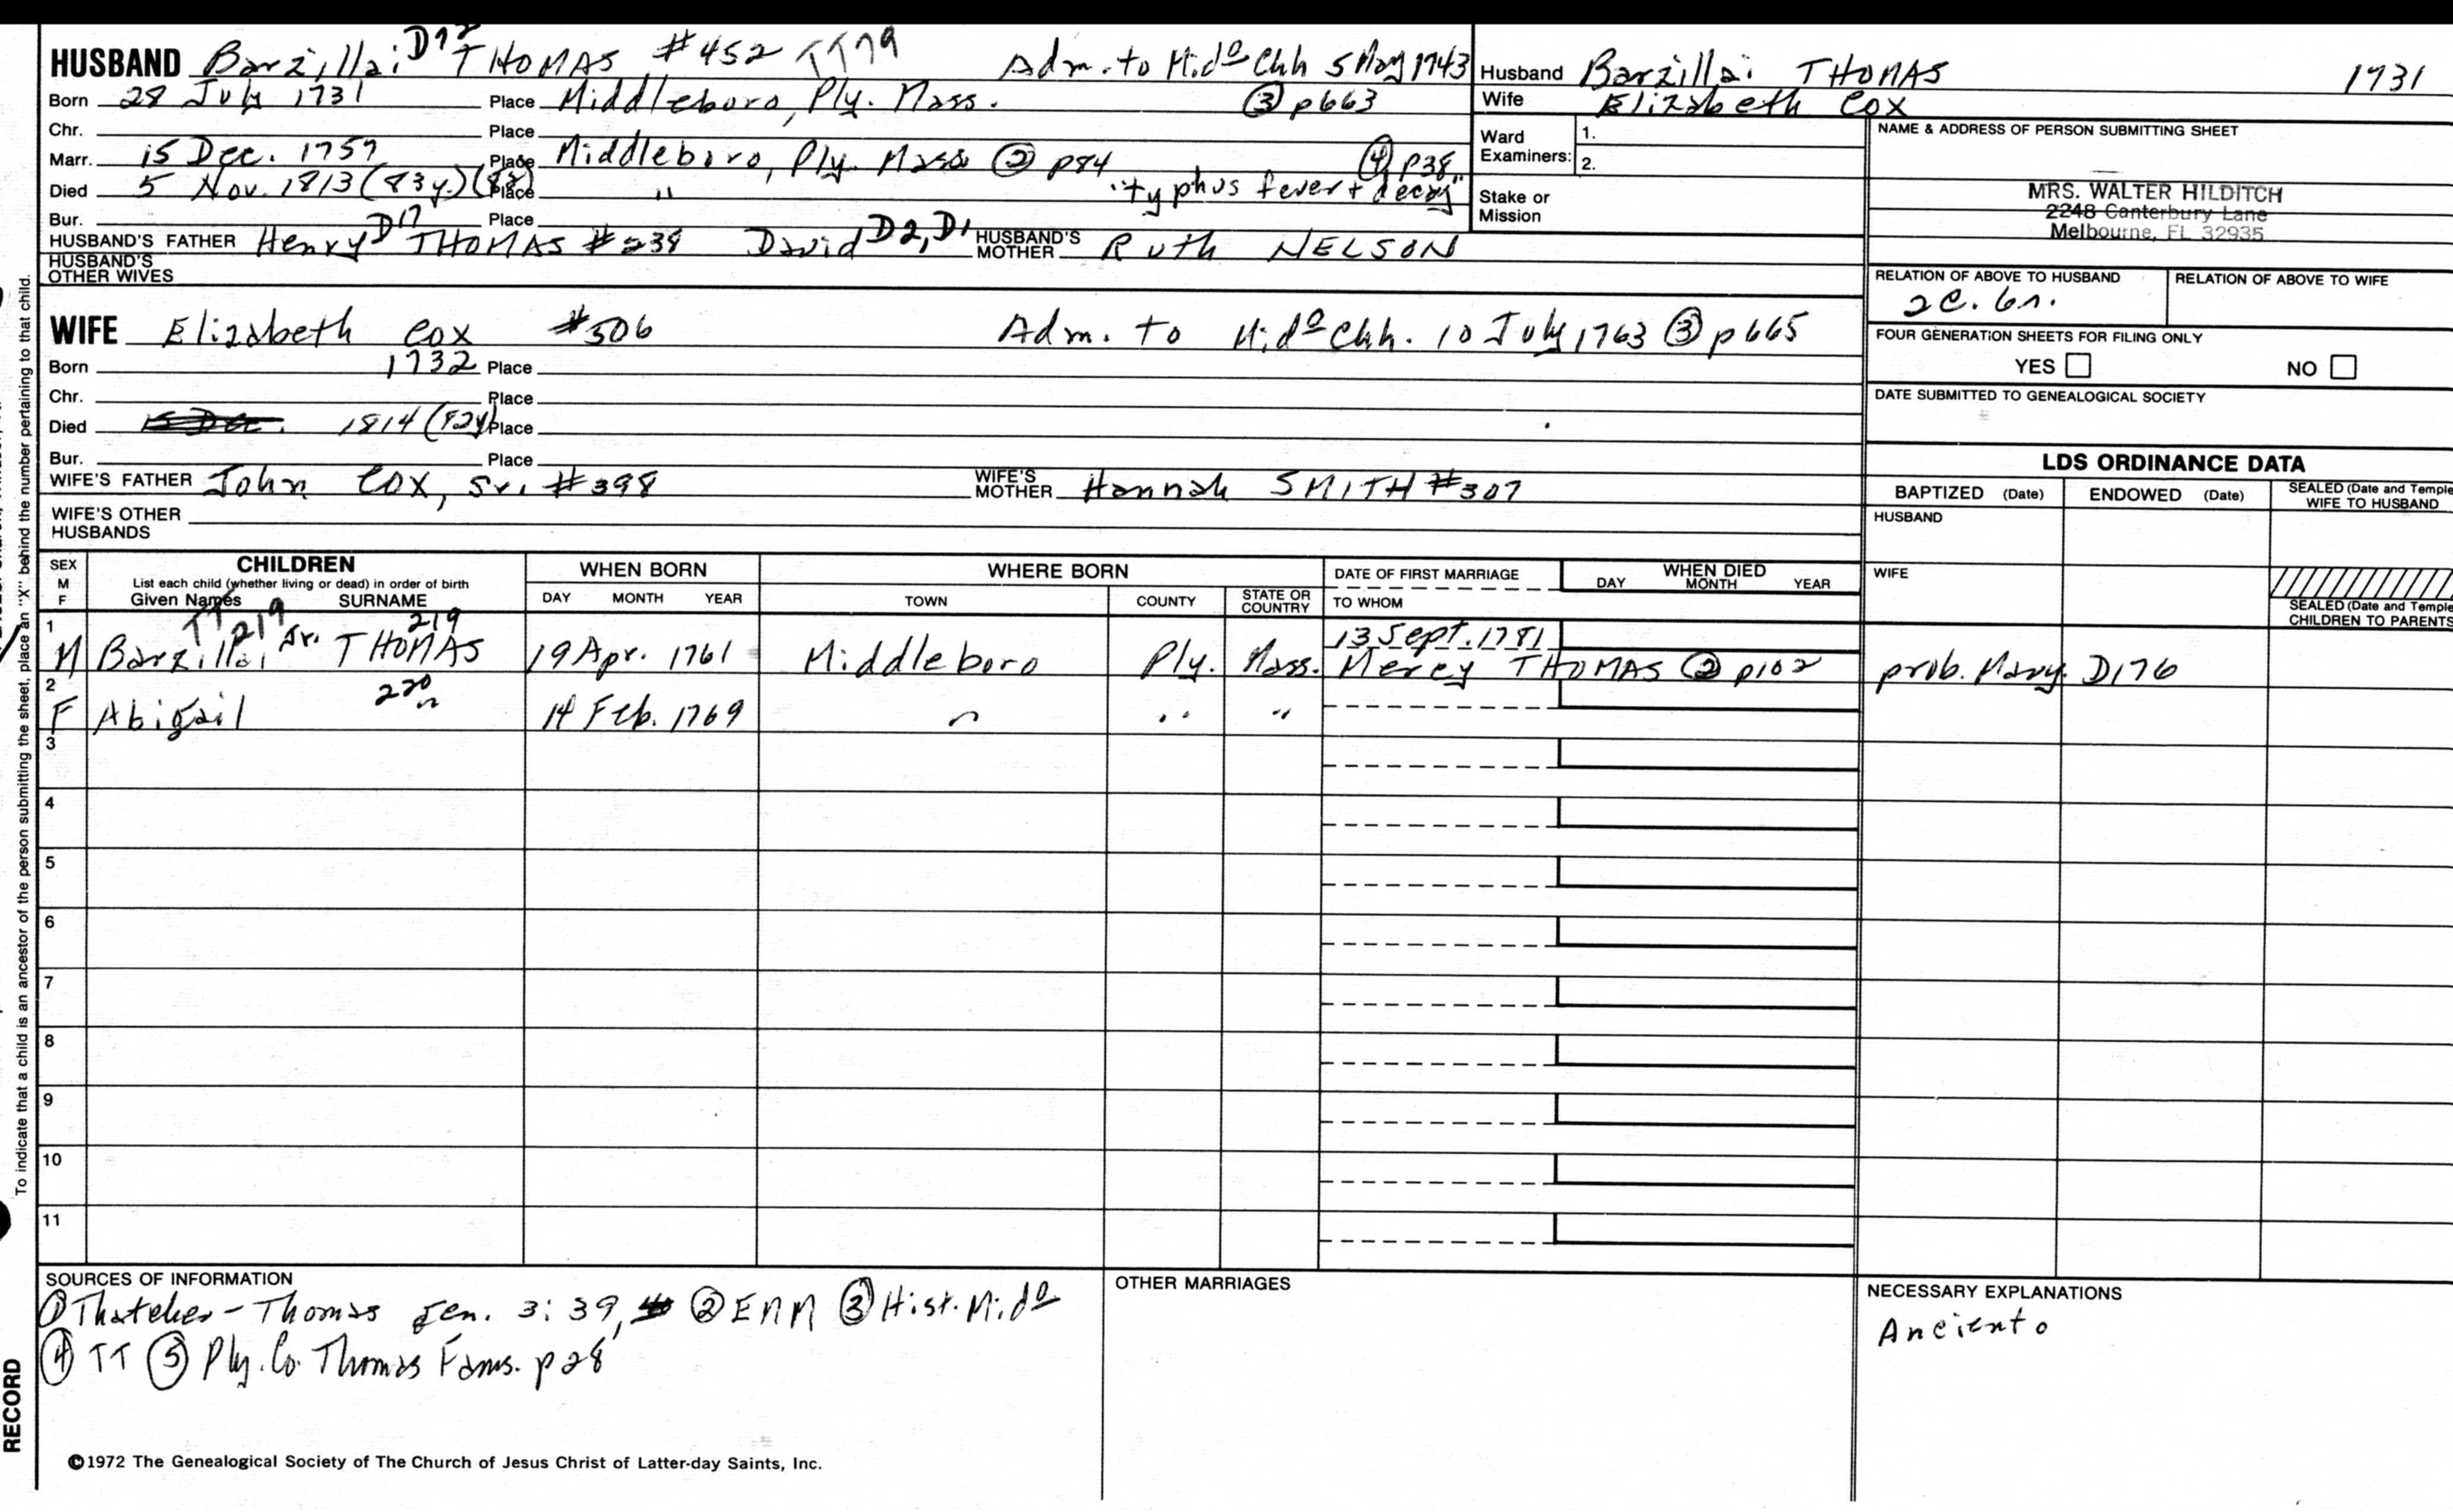 HUSBAND Barzillai D72 THOMAS #452 TT79 Adm. to Mido Chh 5 May 1743
Born 28 July 1731 Place Middleboro, Ply. Mass. ③ p663
Chr. Place
Marr. 15 Dec. 1757 Place Middleboro, Ply. Mass ② p84 ④ p38
Died 5 Nov. 1813 (83y.) (82) Place " "typhus fever + decay"
Bur. Place
HUSBAND'S FATHER Henry D17 THOMAS #238 David D2, D1 HUSBAND'S MOTHER Ruth NELSON
HUSBAND'S OTHER WIVES
Husband Barzillai THOMAS 1731
Wife Elizabeth Cox
Ward Examiners: 1.
2.
Stake or Mission
NAME & ADDRESS OF PERSON SUBMITTING SHEET
MRS. WALTER HILDITCH
2248 Canterbury Lane
Melbourne, FL 32935
RELATION OF ABOVE TO HUSBAND RELATION OF ABOVE TO WIFE
2C. 6r.
FOUR GENERATION SHEETS FOR FILING ONLY
YES NO
DATE SUBMITTED TO GENEALOGICAL SOCIETY
WIFE Elizabeth Cox #506 Adm. to Mido Chh. 10 July 1763 ③ p665
Born 1732 Place
Chr. Place
Died 15 Dec. 1814 (82y) Place
Bur. Place
WIFE'S FATHER John COX, Sr. #398 WIFE'S MOTHER Hannah SMITH #307
WIFE'S OTHER HUSBANDS
LDS ORDINANCE DATA
BAPTIZED (Date) ENDOWED (Date) SEALED (Date and Temple) WIFE TO HUSBAND
HUSBAND
WIFE
SEALED (Date and Temple) CHILDREN TO PARENTS
SEX M F CHILDREN List each child (whether living or dead) in order of birth Given Names SURNAME
WHEN BORN DAY MONTH YEAR
WHERE BORN TOWN COUNTY STATE OR COUNTRY
DATE OF FIRST MARRIAGE TO WHOM
WHEN DIED DAY MONTH YEAR
TT219 219 13 Sept. 1781
1 M Barzillai, Jr. THOMAS 19 Apr. 1761 Middleboro Ply. Mass. Mercy THOMAS ② p102 prob. Mary. D176
220
2 F Abigail " 14 Feb. 1769 " " "
3
4
5
6
7
8
9
10
11
SOURCES OF INFORMATION
① Thatcher-Thomas gen. 3:39, ② ENM ③ Hist. Mido
④ TT ⑤ Ply. Co. Thomas Fams. p28
OTHER MARRIAGES
NECESSARY EXPLANATIONS
Anciento
©1972 The Genealogical Society of The Church of Jesus Christ of Latter-day Saints, Inc.
To indicate that a child is an ancestor of the person submitting the sheet, place an "X" behind the number pertaining to that child.
RECORD